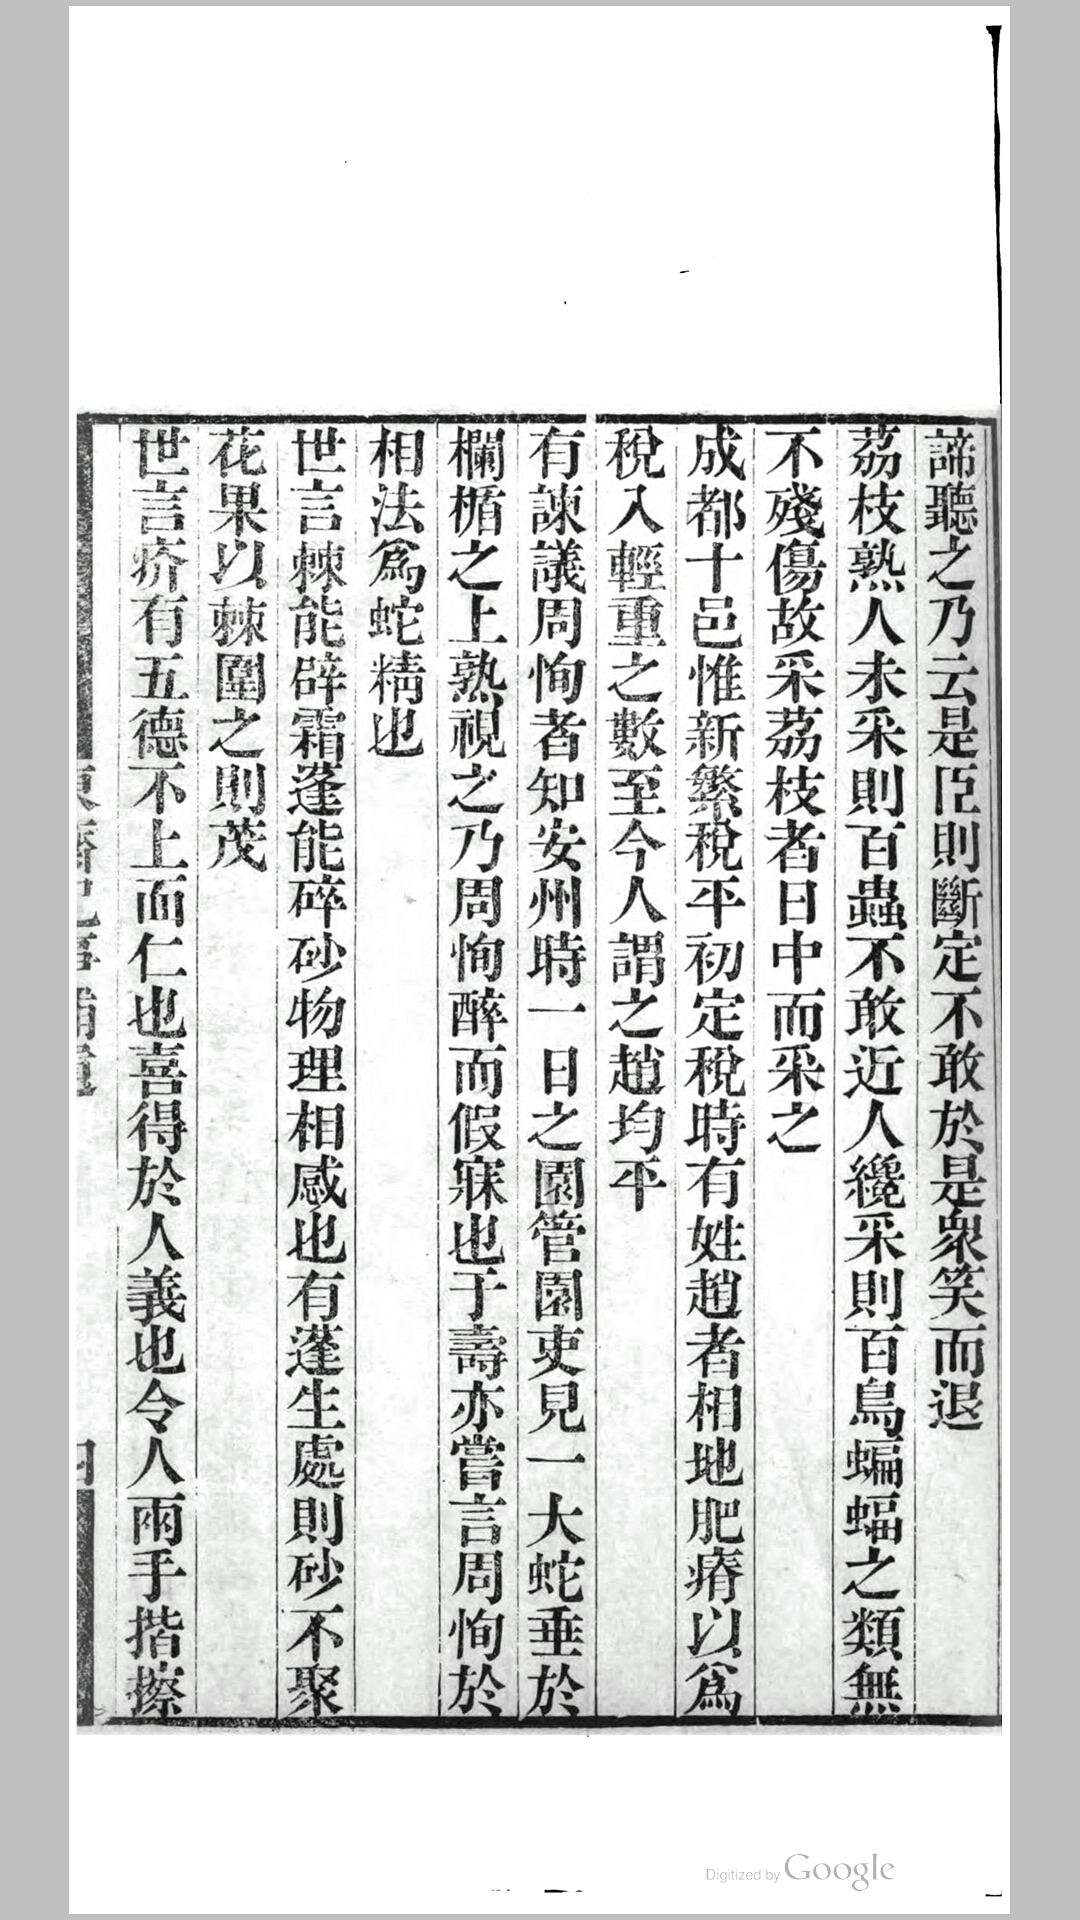 諦聽之乃云是臣則斷定不敢於是衆笑而退
荔枝熟人未采則百蟲不敢近人纔采則百鳥蝙蝠之類無
不殘傷故采荔枝者日中而采之
成都十邑惟新繁稅平初定稅時有姓趙者相地肥瘠以爲
稅入輕重之數至今人謂之趙均平
有諫議周恂者知安州時一日之園管園吏見一大蛇垂於
欄楯之上熟視之乃周恂醉而假寐也于壽亦嘗言周恂於
相法爲蛇精也
世言棘能辟霜蓬能碎砂物理相感也有蓬生處則砂不聚
花果以棘圍之則茂
世言疥有五德不上面仁也喜得於人義也令人兩手揩擦
東齋記事補遺
四
Digitized by Google